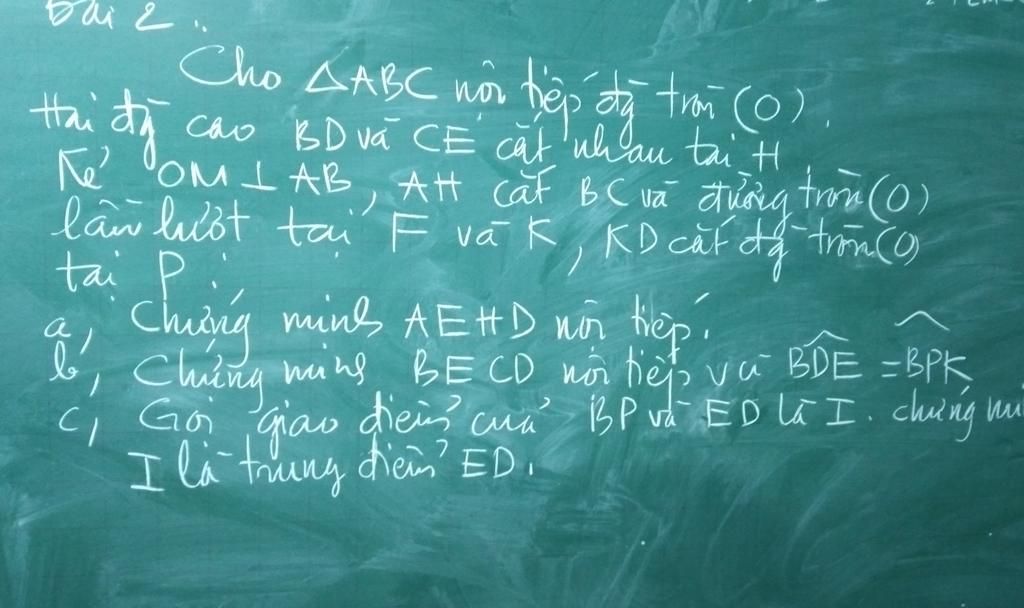 Bài 2:
Cho △ABC nội tiếp đg tròn (O).
Hai đg cao BD và CE cắt nhau tại H
Kẻ OM ⊥ AB, AH cắt BC và đường tròn (O)
lần lượt tại F và K, KD cắt đg tròn (O)
tại P.
a, Chứng minh AEHD nội tiếp.
b, Chứng minh BECD nội tiếp và \widehat{BDE} = \widehat{BPK}
c, Gọi giao điểm của BP và ED là I. chứng mi
I là trung điểm ED.